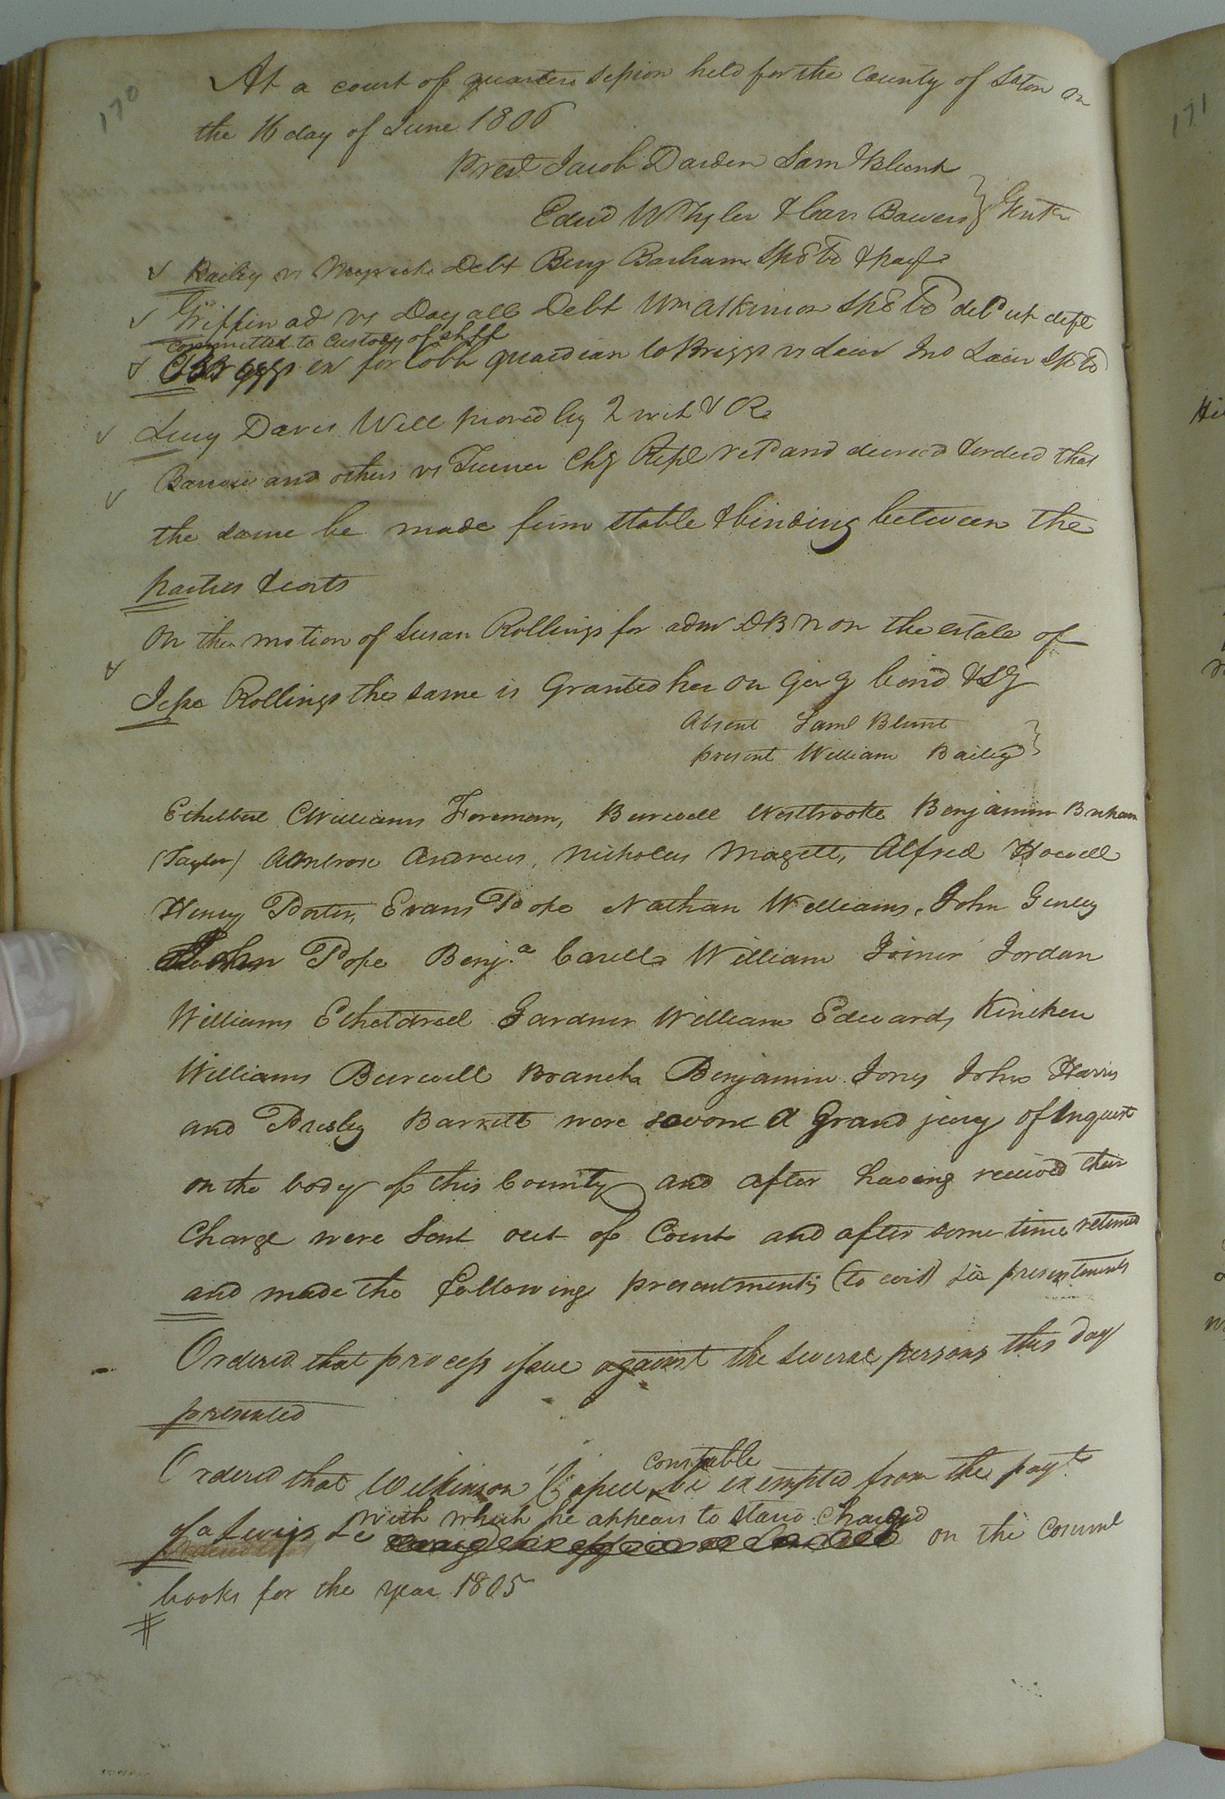 170
At a court of quarter session held for the County of Soton on
the 16 day of June 1806
Prest Jacob Darden Saml Blunt
Edwd W Tyler & Carr Bowers } Gentn
Bailey vs Meyrick Debt Benj Barham SpB &
Griffin ad vs Day alb Debt Wm Atkinson SpB deft
committed to custody of shff
Briggs ex for Cobb guardian to Briggs vs Lain Jno Lain SpB
Lucy Davis Will proved by 2 wit & OR
Barrow and others vs Turner Chy Rept retd and decreed & orderd that
the same be made firm stable & binding between the
parties & costs
On the motion of Susan Rollings for adm DBN on the estate of
Jesse Rollings the same is Granted her on givg bond & Sy
Absent Saml Blunt
present William Bailey }
Ethelbert C Williams Foreman, Burwell Westbrooke Benjamin Barham
(Taylor) Ambrose Andrews, Nicholas Magett, Alfred Howell
Henry Porter, Evans Pope Nathan Williams, John Gurley
John Pope Benja Carell William Joiner Jordan
Williams Etheldred Gardner William Edwards Kinchen
Williams Burwell Branch Benjamin Jones John Harris
and Presley Barrett were sworn a Grand jury of Inquest
on the body of this County and after having received their
Charge were Sent out of Court and after some time returned
and made the following presentments (to wit) six presentments
Ordered that process issue against the several persons this day
presented
Ordered that Wilkinson Capell constable be exempted from the payt
of a Levy &c with which he appears to stand Charged on the
books for the year 1805
171